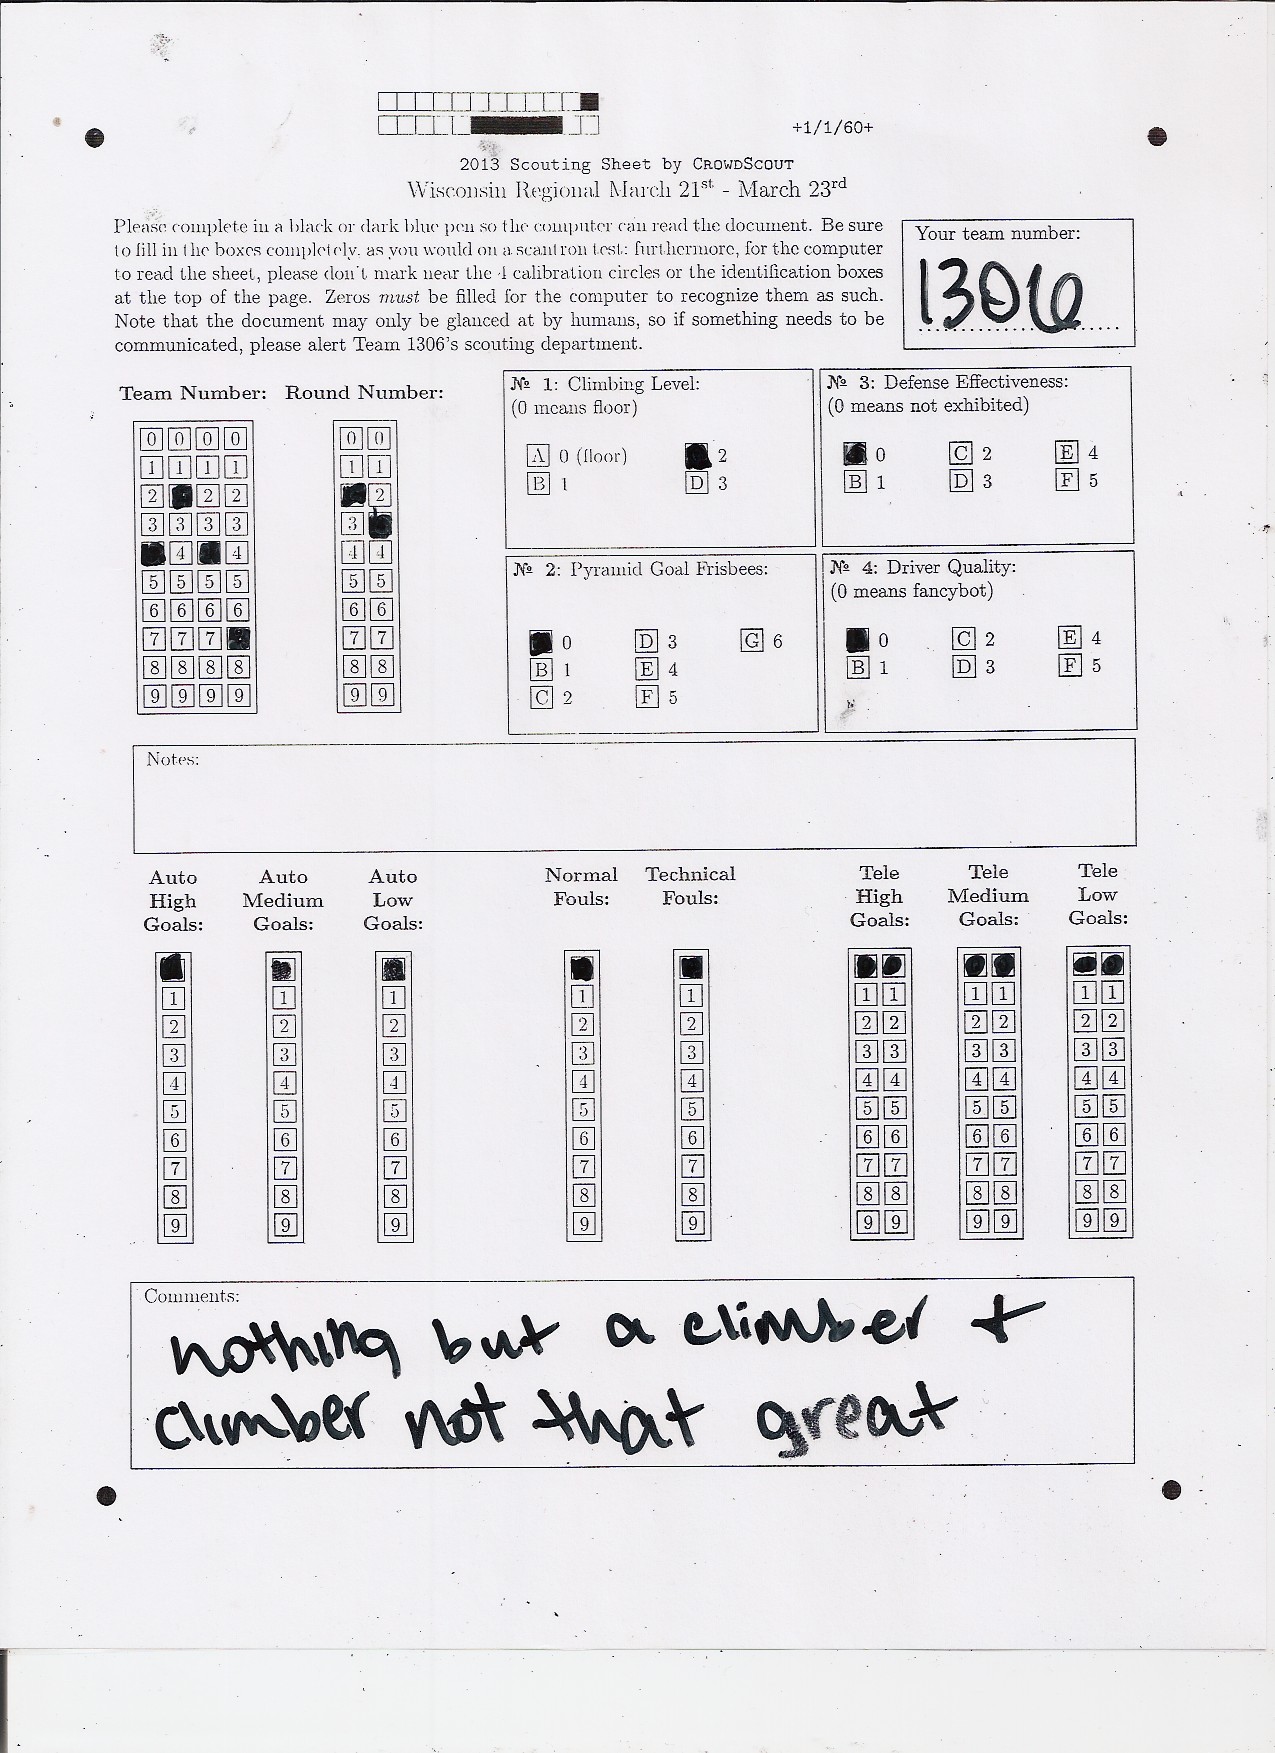 +1/1/60+
2013 Scouting Sheet by CrowdScout
Wisconsin Regional March 21st - March 23rd
Please complete in a black or dark blue pen so the computer can read the document. Be sure
to fill in the boxes completely, as you would on a scantron test; furthermore, for the computer
to read the sheet, please don't mark near the 4 calibration circles or the identification boxes
at the top of the page. Zeros must be filled for the computer to recognize them as such.
Note that the document may only be glanced at by humans, so if something needs to be
communicated, please alert Team 1306's scouting department.
Your team number:
1306
Team Number: Round Number:
0 0 0 0 0 0
1 1 1 1 1 1
2 2 2 2
3 3 3 3 3
4 4 4 4
5 5 5 5 5 5
6 6 6 6 6 6
7 7 7 7 7
8 8 8 8 8 8
9 9 9 9 9 9
№ 1: Climbing Level:
(0 means floor)
A 0 (floor) 2
B 1 D 3
№ 3: Defense Effectiveness:
(0 means not exhibited)
0 C 2 E 4
B 1 D 3 F 5
№ 2: Pyramid Goal Frisbees:
0 D 3 G 6
B 1 E 4
C 2 F 5
№ 4: Driver Quality:
(0 means fancybot)
0 C 2 E 4
B 1 D 3 F 5
Notes:
Auto High Goals: Auto Medium Goals: Auto Low Goals: Normal Fouls: Technical Fouls: Tele High Goals: Tele Medium Goals: Tele Low Goals:
1 1 1 1 1 1 1 1 1 1 1
2 2 2 2 2 2 2 2 2 2 2
3 3 3 3 3 3 3 3 3 3 3
4 4 4 4 4 4 4 4 4 4 4
5 5 5 5 5 5 5 5 5 5 5
6 6 6 6 6 6 6 6 6 6 6
7 7 7 7 7 7 7 7 7 7 7
8 8 8 8 8 8 8 8 8 8 8
9 9 9 9 9 9 9 9 9 9 9
Comments:
nothing but a climber +
climber not that great